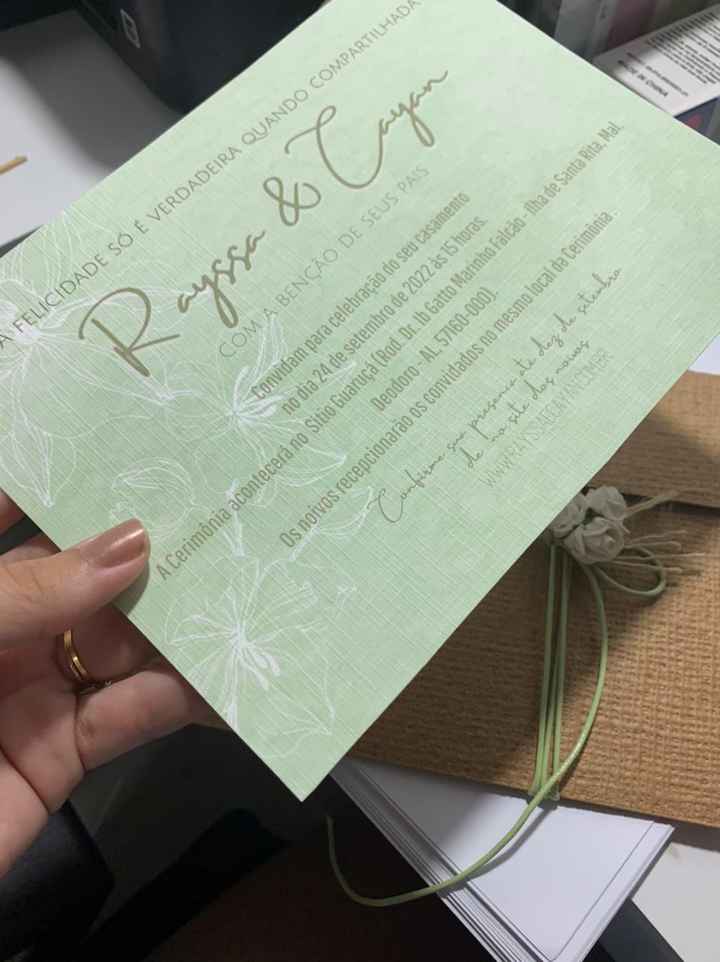 A FELICIDADE SÓ É VERDADEIRA QUANDO COMPARTILHADA
Rayssa & Cayan
COM A BENÇÃO DE SEUS PAIS
Convidam para celebração do seu casamento
no dia 24 de setembro de 2022 às 15 horas.
A Cerimônia acontecerá no Sítio Guaruçá (Rod. Dr. Ib Gatto Marinho Falcão - Ilha de Santa Rita, Mal.
Deodoro - AL, 57160-000).
Os noivos recepcionarão os convidados no mesmo local da Cerimônia .
Confirme sua presença até dez de setembro
de no site dos noivos
WWW.RAYSSAECAYAN.COM.BR
MADE IN CHINA